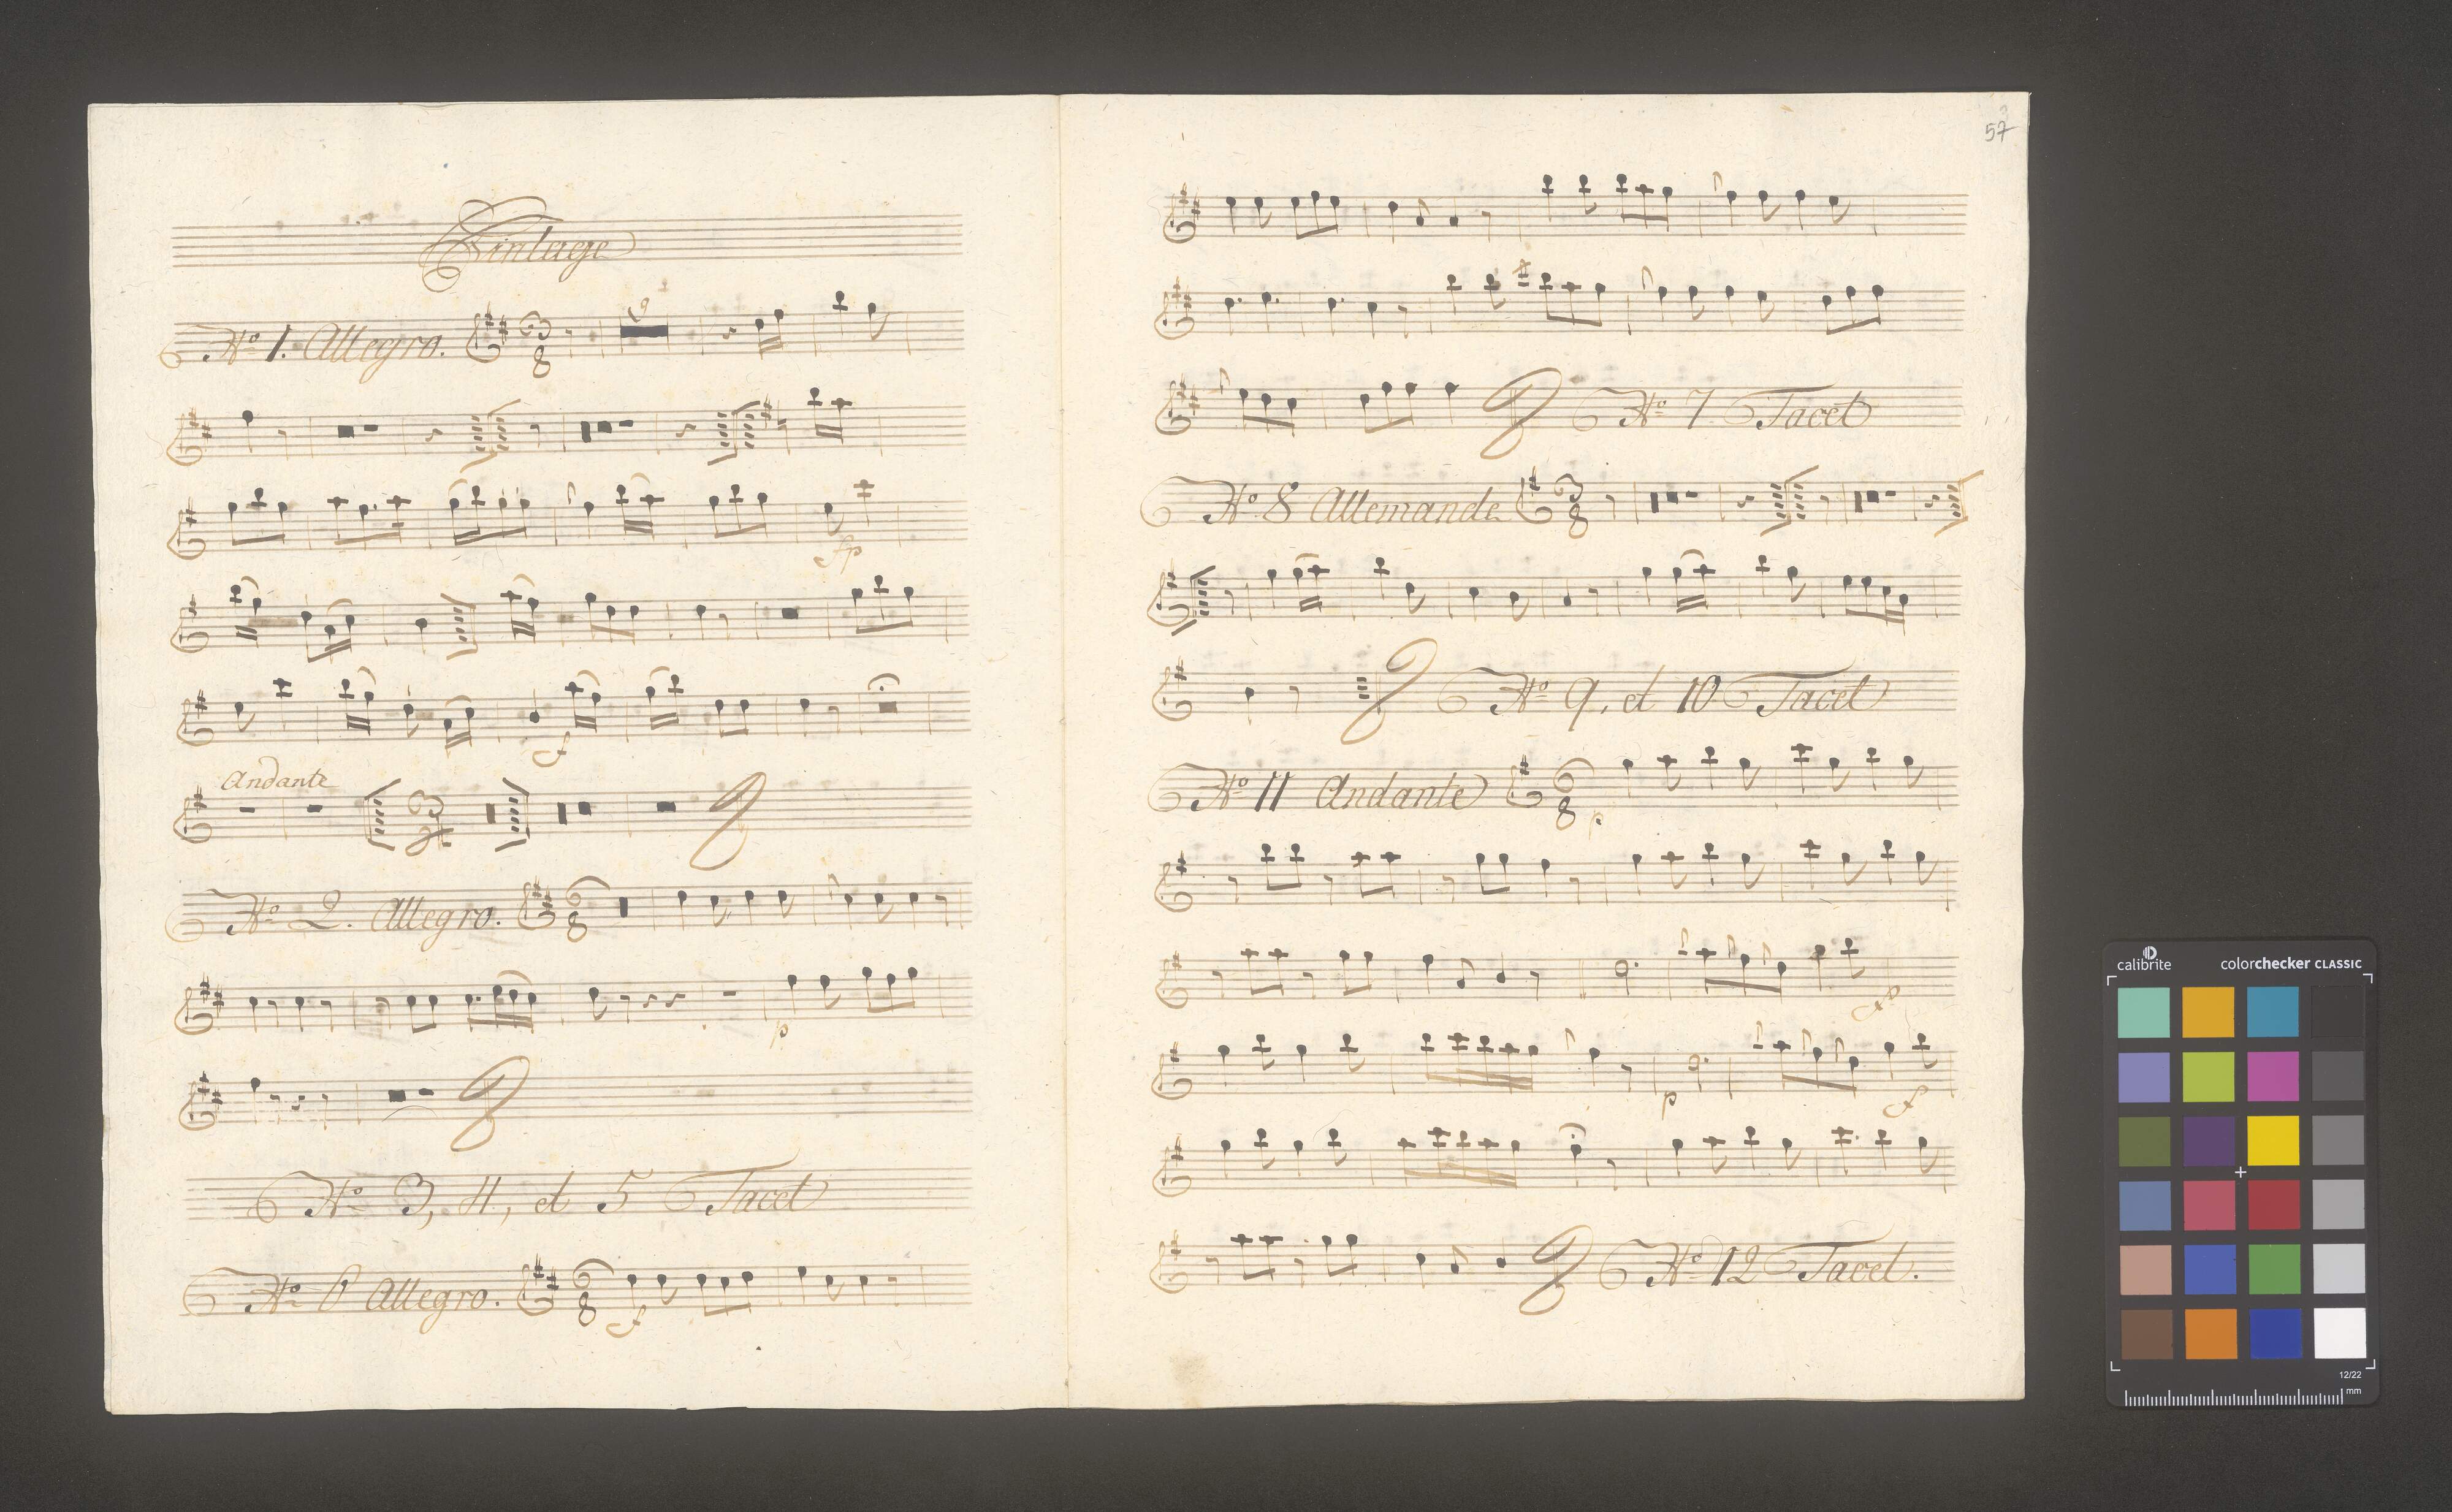 Einlage
No 1. Allegro.
9
fp
f
Andante
No 2. Allegro.
p
No 3, 4, et 5 Tacet
No 6 Allegro.
f
57
No 7 Tacet
No 8 Allemande
No 9, et 10 Tacet
No 11 Andante
p
f
p
f
No 12 Tacet.
calibrite
colorchecker CLASSIC
12/22
mm